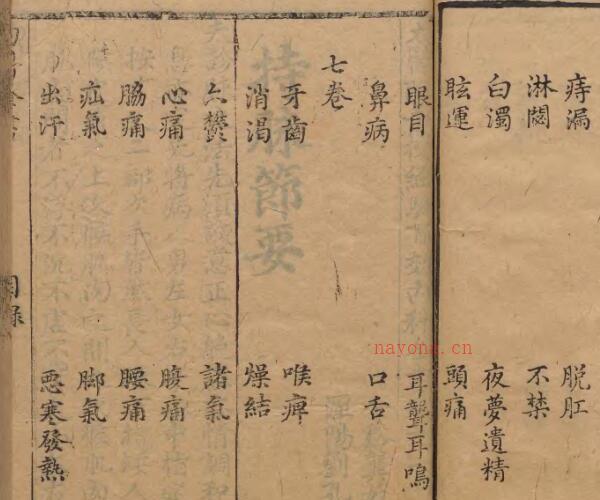 痔漏　脱肛
淋閟　不禁
白濁　夜夢遺精
眩運　頭痛
眼目　耳聾耳鳴
鼻病　口舌
七卷
牙齒　喉痺
消渴　燥結
六欝　諸氣
心痛　腹痛
脇痛　腰痛
疝氣　脚氣
出汗　惡寒發熱
目錄
nayona.cn